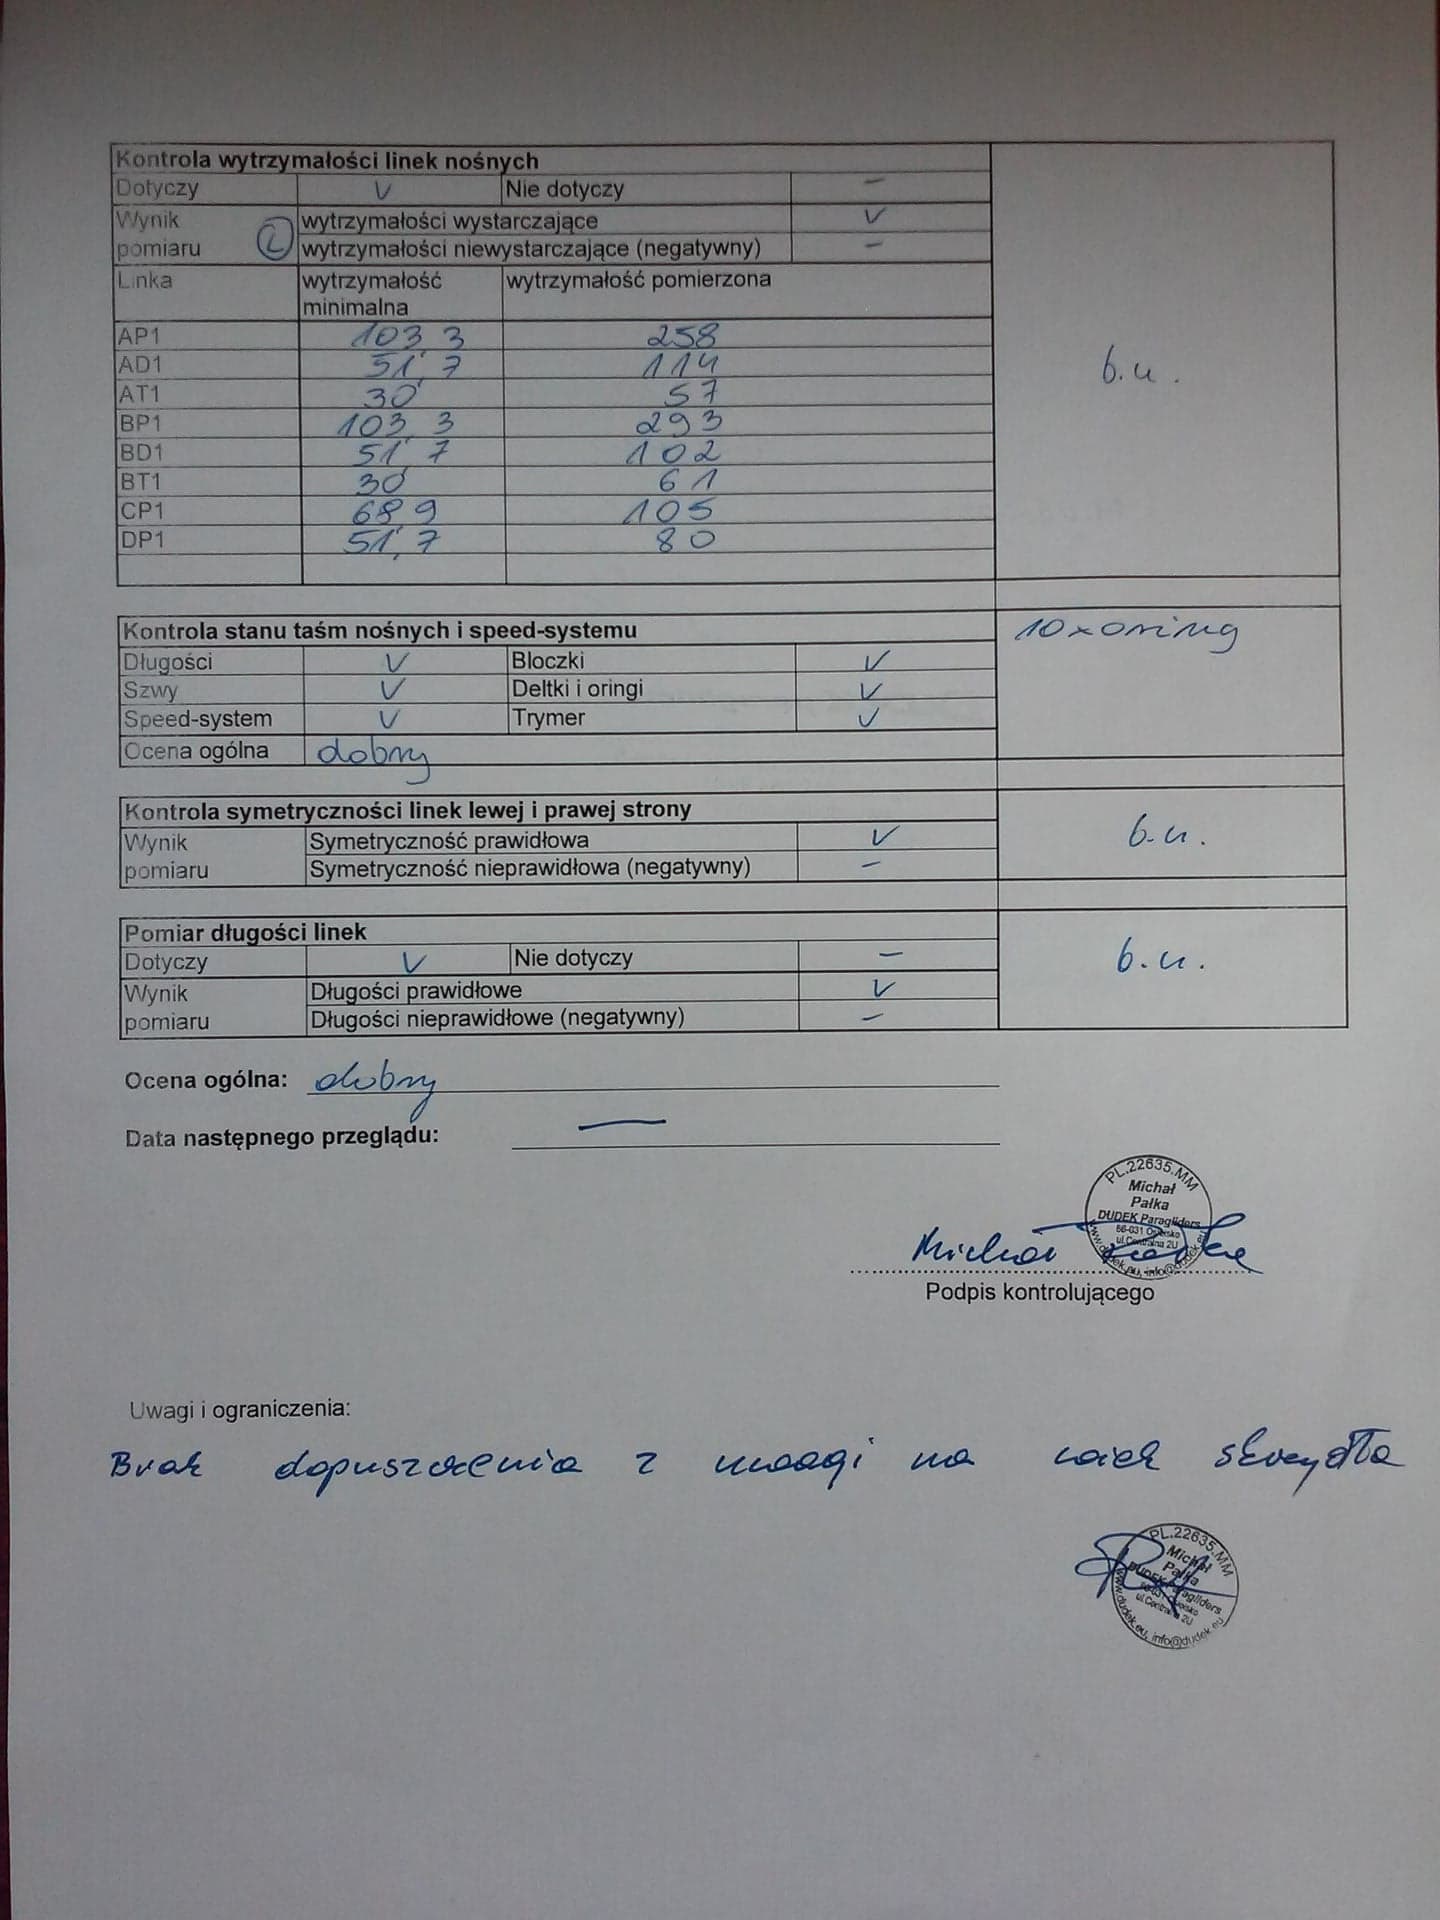 Kontrola wytrzymałości linek nośnych
Dotyczy V Nie dotyczy –
Wynik pomiaru wytrzymałości wystarczające V
wytrzymałości niewystarczające (negatywny) –
Linka wytrzymałość minimalna wytrzymałość pomierzona
AP1 103,3 258
AD1 51,7 114
AT1 30 57
BP1 103,3 293
BD1 51,7 102
BT1 30 61
CP1 68,9 105
DP1 51,7 80
b.u.
Kontrola stanu taśm nośnych i speed-systemu 10xoring
Długości V Bloczki V
Szwy V Deltki i oringi V
Speed-system V Trymer V
Ocena ogólna dobry
Kontrola symetryczności linek lewej i prawej strony
Wynik pomiaru Symetryczność prawidłowa V b.u.
Symetryczność nieprawidłowa (negatywny) –
Pomiar długości linek
Dotyczy V Nie dotyczy – b.u.
Wynik pomiaru Długości prawidłowe V
Długości nieprawidłowe (negatywny) –
Ocena ogólna: dobry
Data następnego przeglądu: —
PL.22635.MM
Michał
Pałka
DUDEK Paragliders
ul.Centralna 2U
www.dudek.eu, info@dudek.eu
Michał Pałka
Podpis kontrolującego
Uwagi i ograniczenia:
Brak dopuszczenia z uwagi na wiek skrzydła
PL.22635.MM
Michał
Pałka
DUDEK Paragliders
ul.Centralna 2U
www.dudek.eu, info@dudek.eu